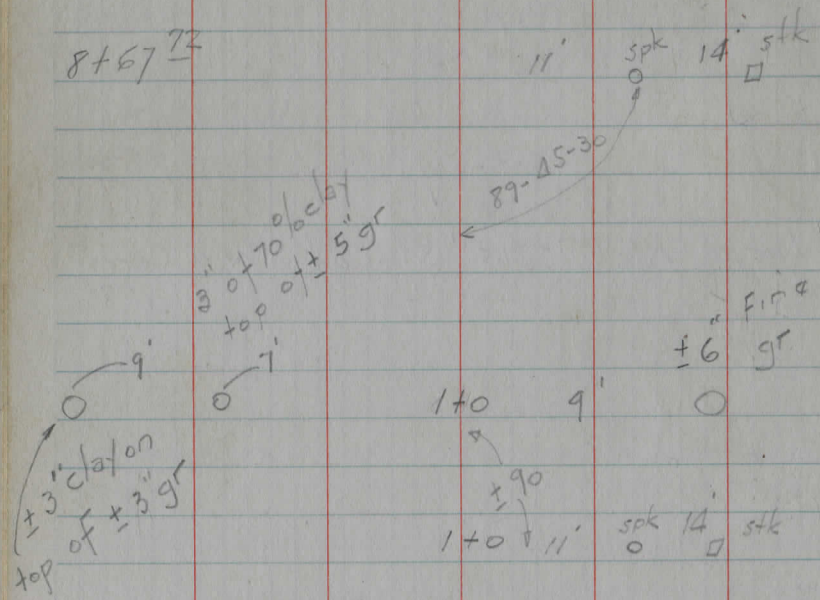 8+67 72
11' spk 14' stk
89-45-30
3" of 70% clay
top of ± 5" gr
9' 7'
± 6" Fine
gr
1+0 9'
± 3" clay on
top of ± 3" gr
± 90
1+0 11' spk 14' stk